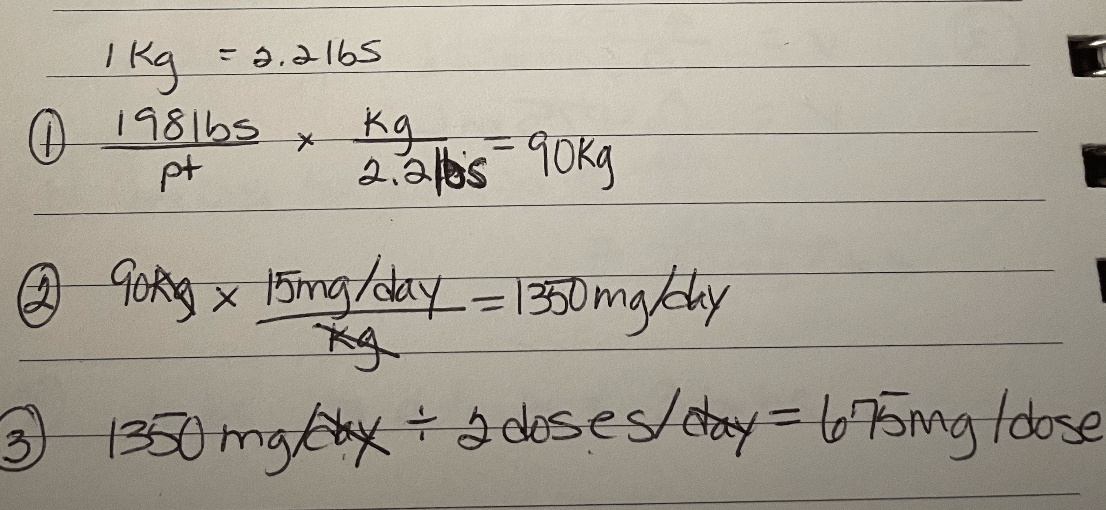 1 Kg = 2.2 lbs
① 198 lbs / pt × Kg / 2.2 lbs = 90Kg
② 90Kg × 15mg/day / Kg = 1350 mg/day
③ 1350 mg/day ÷ 2 doses/day = 675mg/dose